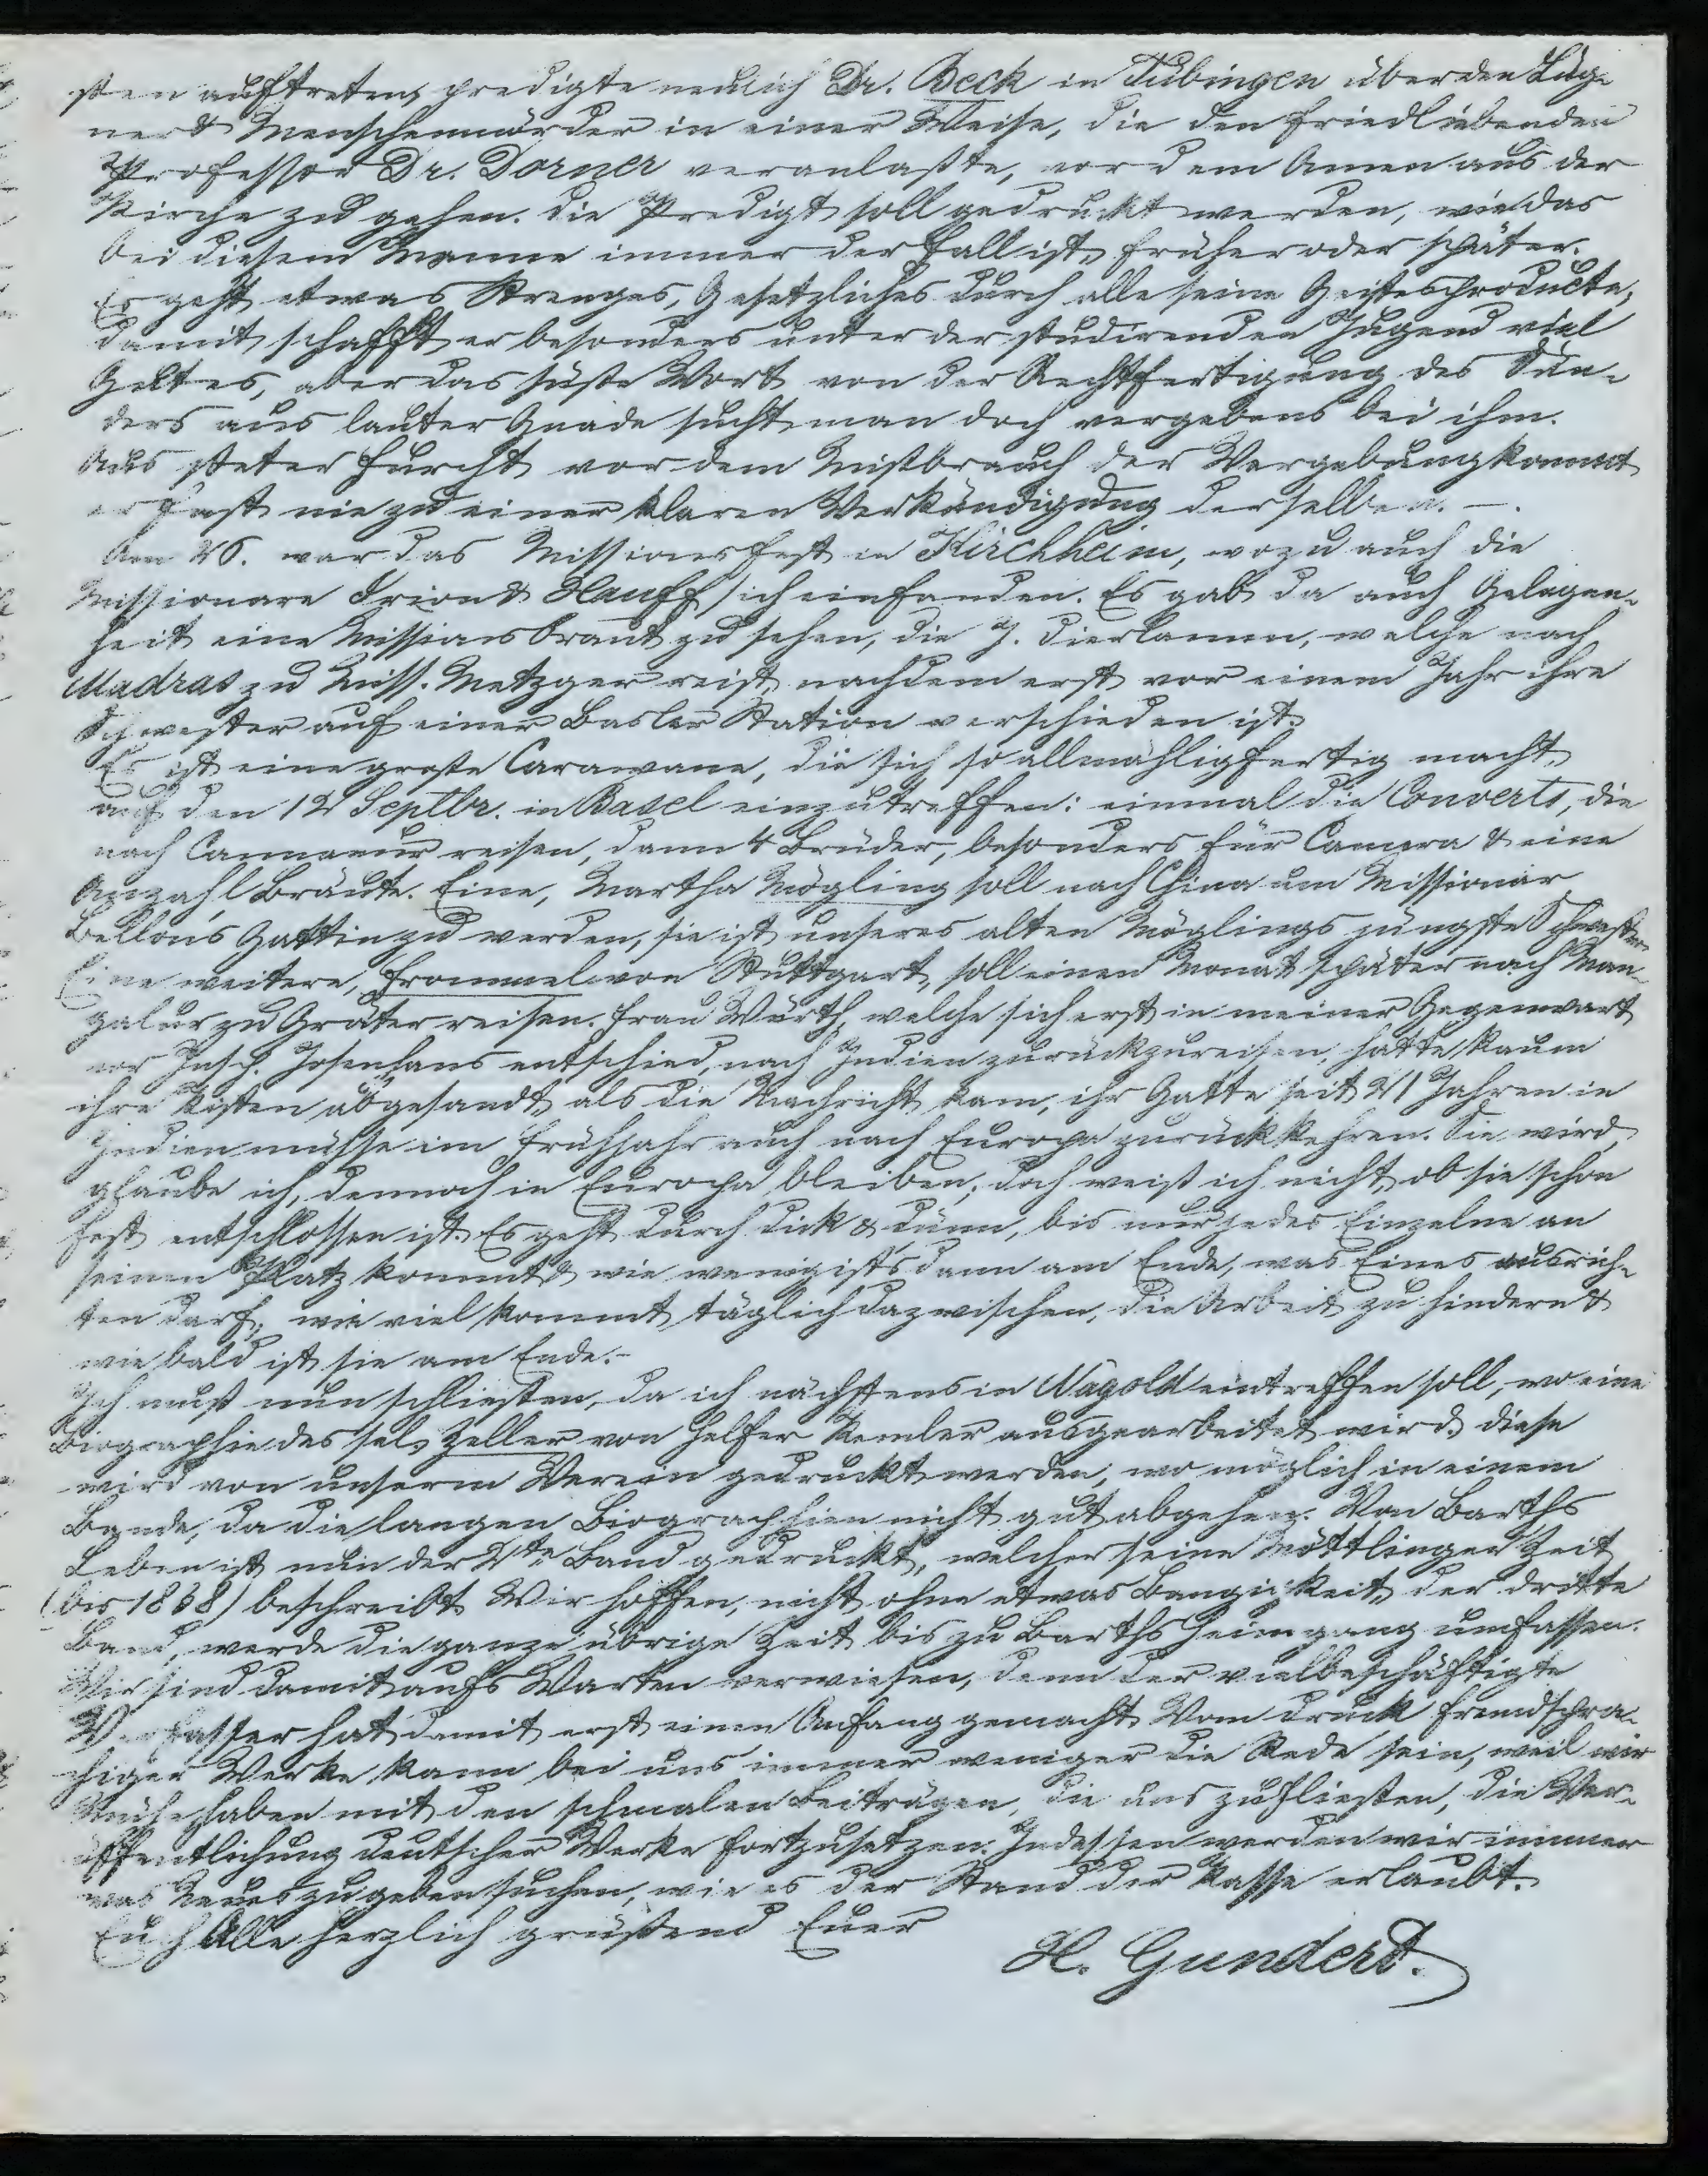 sten auftreten, predigte neulich Dr. Beck in Tübingen über den Lüg-
ner & Menschenmörder in einer Weise, die den friedliebenden
Professor Dr. Dorner veranlaßte, vor dem Amen aus der
Kirche zu gehen. Die Predigt soll gedruckt werden, wie das
bei diesem Manne immer der Fall ist, früher oder später.
Es geht etwas Strenges, Gesetzliches durch alle seine Geistesproducte,
damit schafft er besonders unter der studirenden Jugend viel
Gutes, aber das süße Wort von der Rechtfertigung des Sün-
ders aus lauter Gnade sucht man doch vergebens bei ihm.
Aus steter Furcht vor dem Mißbrauch der Vergebung kommt
er fast nie zu einer klaren Verkündigung derselben. –.
Am 26. war das Missionsfest in Kirchheim, wozu auch die
Missionare Irion & Hauff sich einfanden. Es gab da auch Gelegen-
heit eine Missionsbraut zu sehen, die J. Dierlamm, welche nach
Madras zu Miss. Metzger reist, nachdem erst vor einem Jahr ihre
Schwester auf einer Basler Station verschieden ist.
Es ist eine große Carawane, die sich so allmählig fertig macht,
auf den 12 Septbr. in Basel einzutreffen: einmal die Converts, die
nach Cannanur reisen, dann 4 Brüder, besonders für Canara & eine
Anzahl Bräute. Eine, Martha Mögling soll nach China um Missionar
Bellon's Gattin zu werden, sie ist unseres alten Möglings jüngste Schwester.
Eine weitere, Frommel von Stuttgart, soll einen Monat später nach Man-
galur zu Gräter reisen. Frau Würth, welche sich erst in meiner Gegenwart
vor Insp. Josenhans entschied, nach Indien zurückzureisen, hatte kaum
ihre Kisten abgesandt, als die Nachricht kam, ihr Gatte seit 21 Jahren in
Indien müsse im Frühjahr auch nach Europa zurückkehren. Sie wird,
glaube ich, dennoch in Europa bleiben; doch weiß ich nicht, ob sie schon
fest entschlossen ist. Es geht durch dick & dünn, bis nur jedes Einzelne an
seinen Platz kommt & wie wenig ists dann am Ende, was Eines ausrich-
ten darf; wie viel kommt täglich dazwischen, die Arbeit zu hindern &
wie bald ist sie am Ende.–
Ich muß nun schließen, da ich nächstens in Nagold eintreffen soll, wo eine
Biographie des sel. Zeller von Helfer Kemler ausgearbeitet wird. Diese
wird von unserem Verein gedruckt werden, wo möglich in einem
Bande, da die langen Biographien nicht gut abgehen. Von Barths
Leben ist nun der 2te Band gedruckt, welcher seine Möttlinger Zeit
(bis 1838) beschreibt. Wir hoffen, nicht ohne etwas Bangigkeit, der dritte
Band, werde die ganze übrige Zeit bis zu Barths Heimgang umfassen.
Wir sind damit aufs Warten verwiesen, denn der vielbeschäftigte
Verfasser hat damit erst einen Anfang gemacht. Vom Druck fremdspra-
chiger Werke kann bei uns immer weniger die Rede sein, weil wir
Mühe haben mit den schmalen Beiträgen, die uns zufließen, die Ver-
öffentlichung deutscher Werke fortzusetzen. Indessen werden wir immer
was Neues zu geben suchen, wie es der Stand der Kasse erlaubt.
Euch Alle herzlich grüßend Euer
H. Gundert.